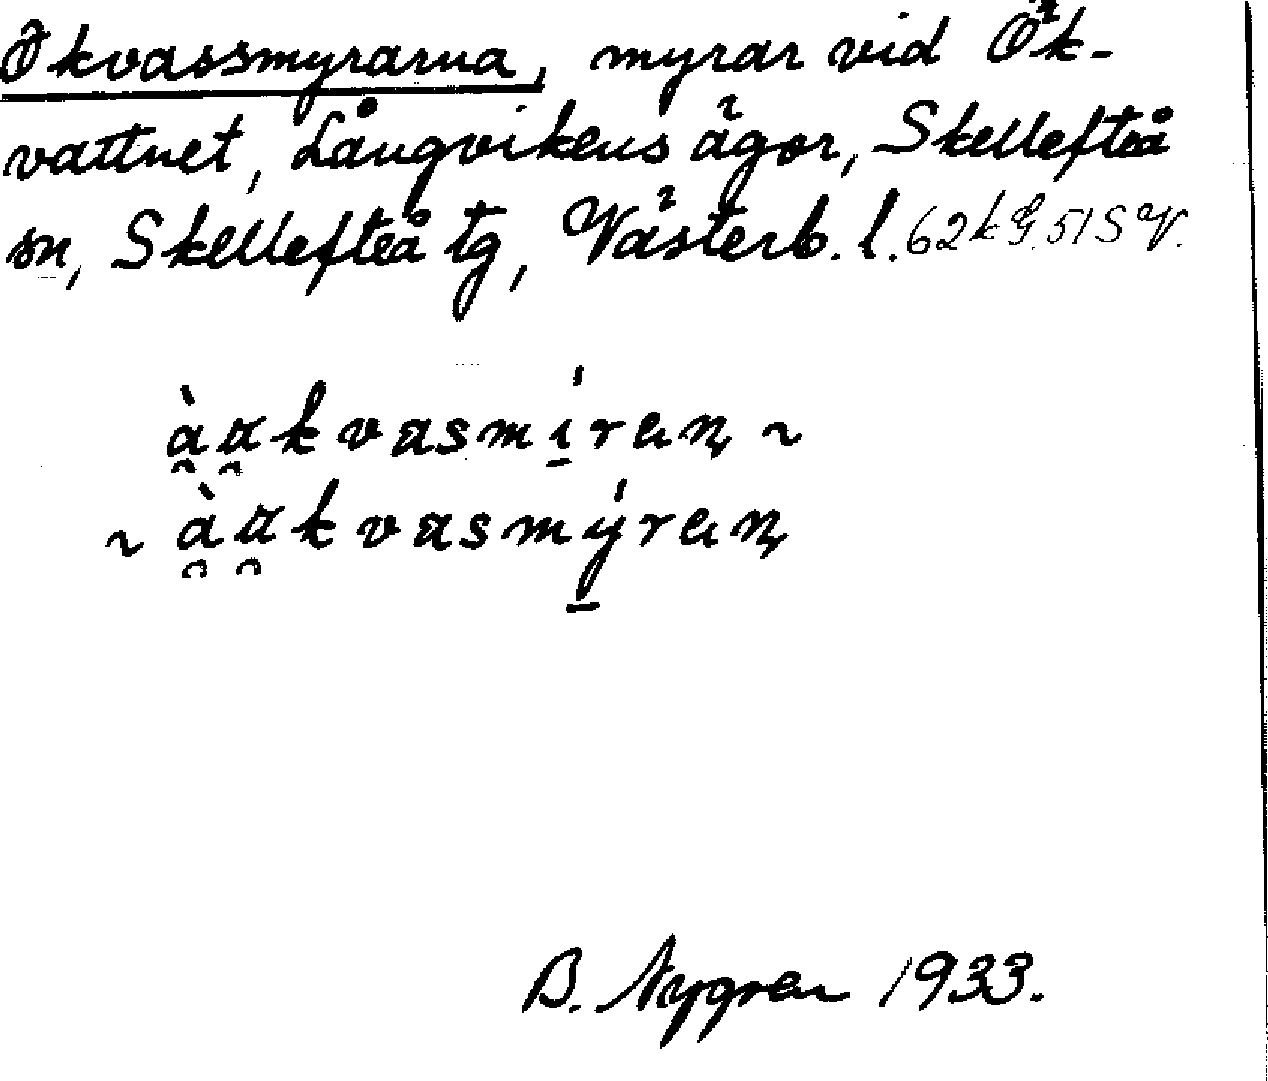 Ökvassmyrarna, myrar vid Ök-
vattnet, Långvikens ägor, Skellefteå
sn, Skellefteå tg, Västerb. l. 62kG.51SV.
àɑkvasmíraṇ ~
~ àɑkvasmýraṇ
B. Nygren 1933.